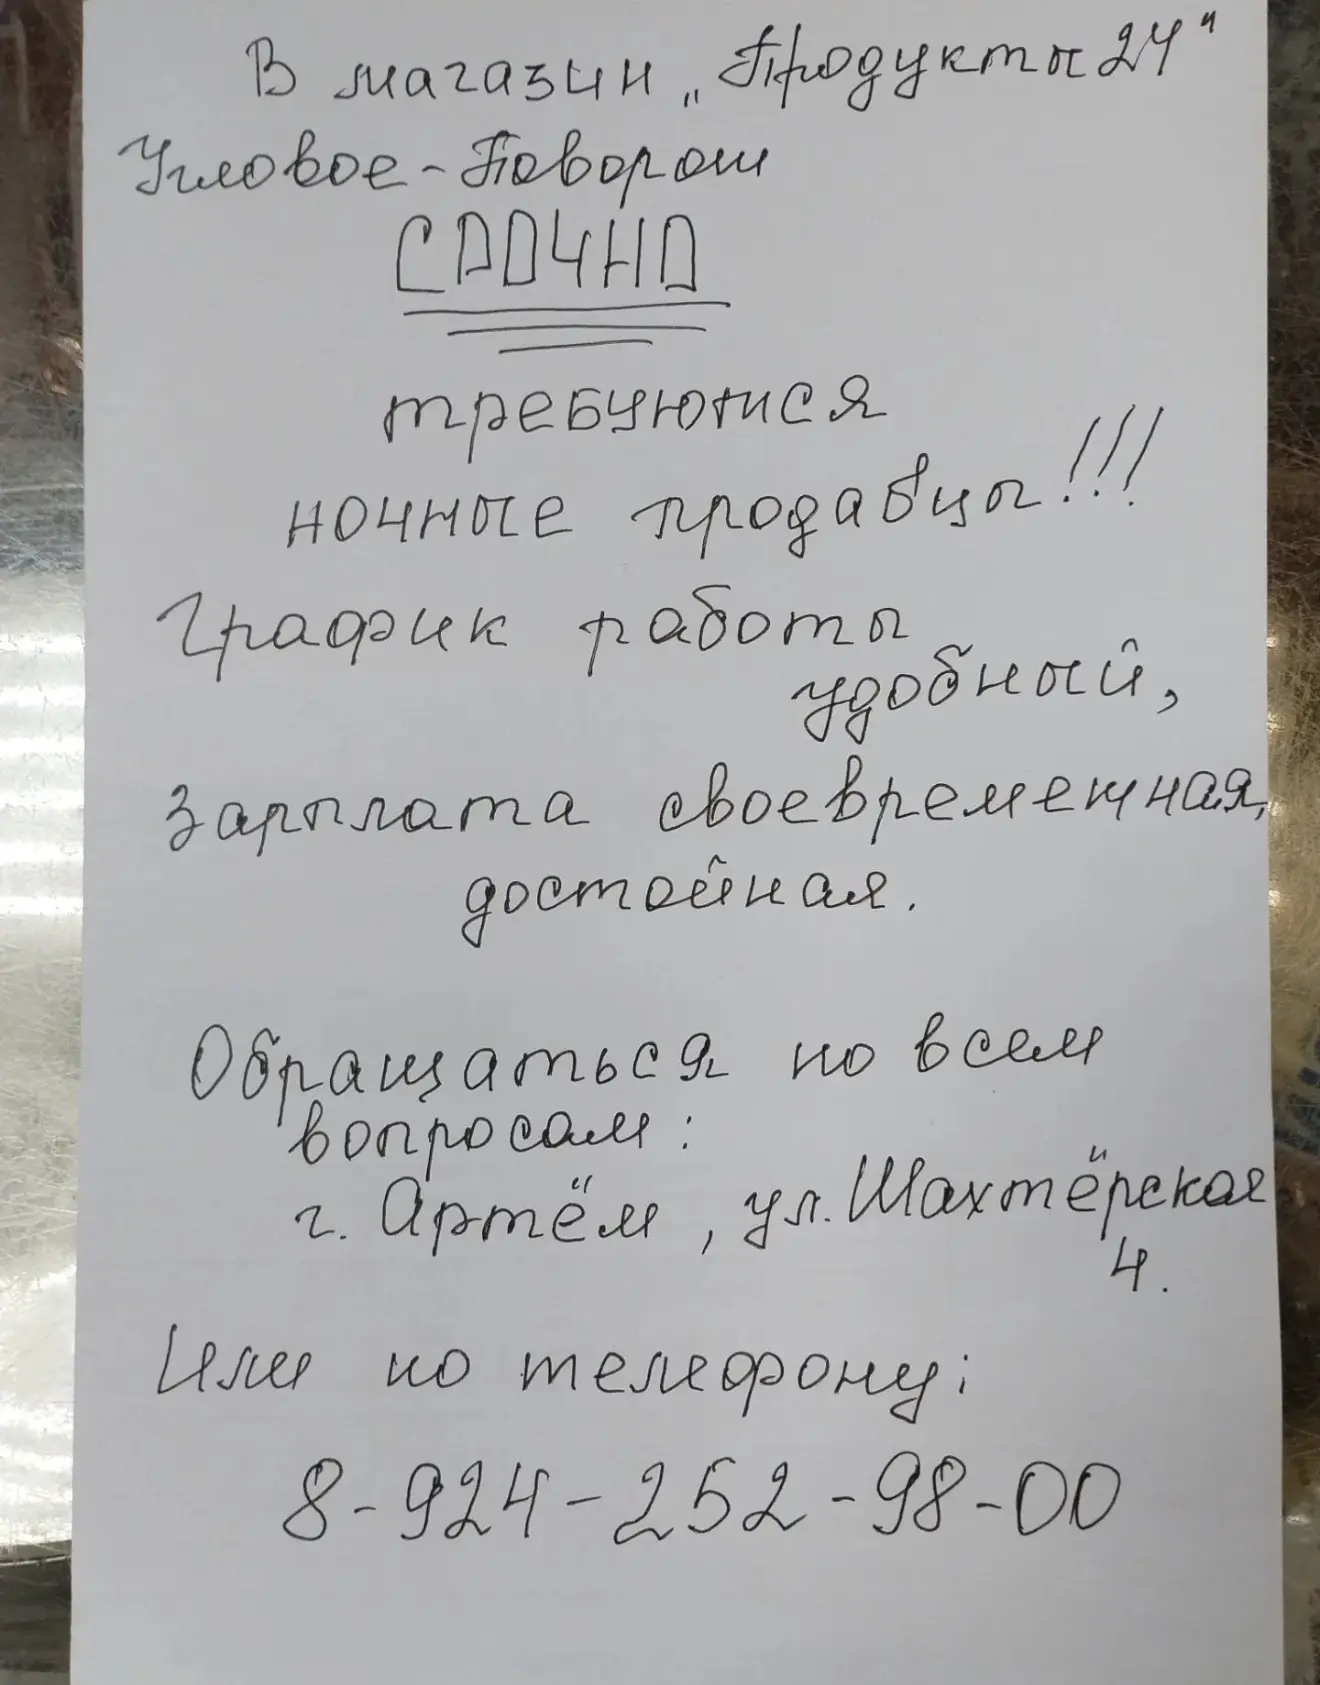 В магазин „Продукты 24"
Угловое-Поворот
СРОЧНО
требуются
ночные продавцы!!!
График работы
удобный,
Зарплата своевременная,
достойная.
Обращаться по всем
вопросам:
г. Артём, ул. Шахтёрская
4.
Или по телефону:
8-924-252-98-00